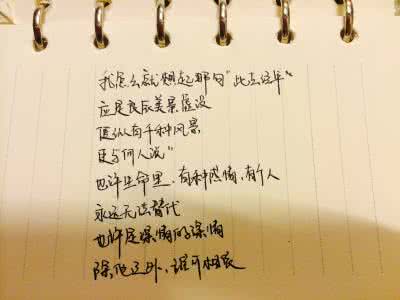 我怎么就想起那句“此去经年“
应是良辰美景虚设
便纵有千种风景
更与何人说”
也许生命里，有种感情，有个人
永远无法替代
也许是深情的深情
除他之外，谁可相